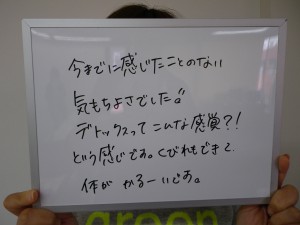 今までに感じたことのない
気もちよさでした。
デトックスってこんな感覚?!
という感じです。くびれもできて
体が かるーいです。
green